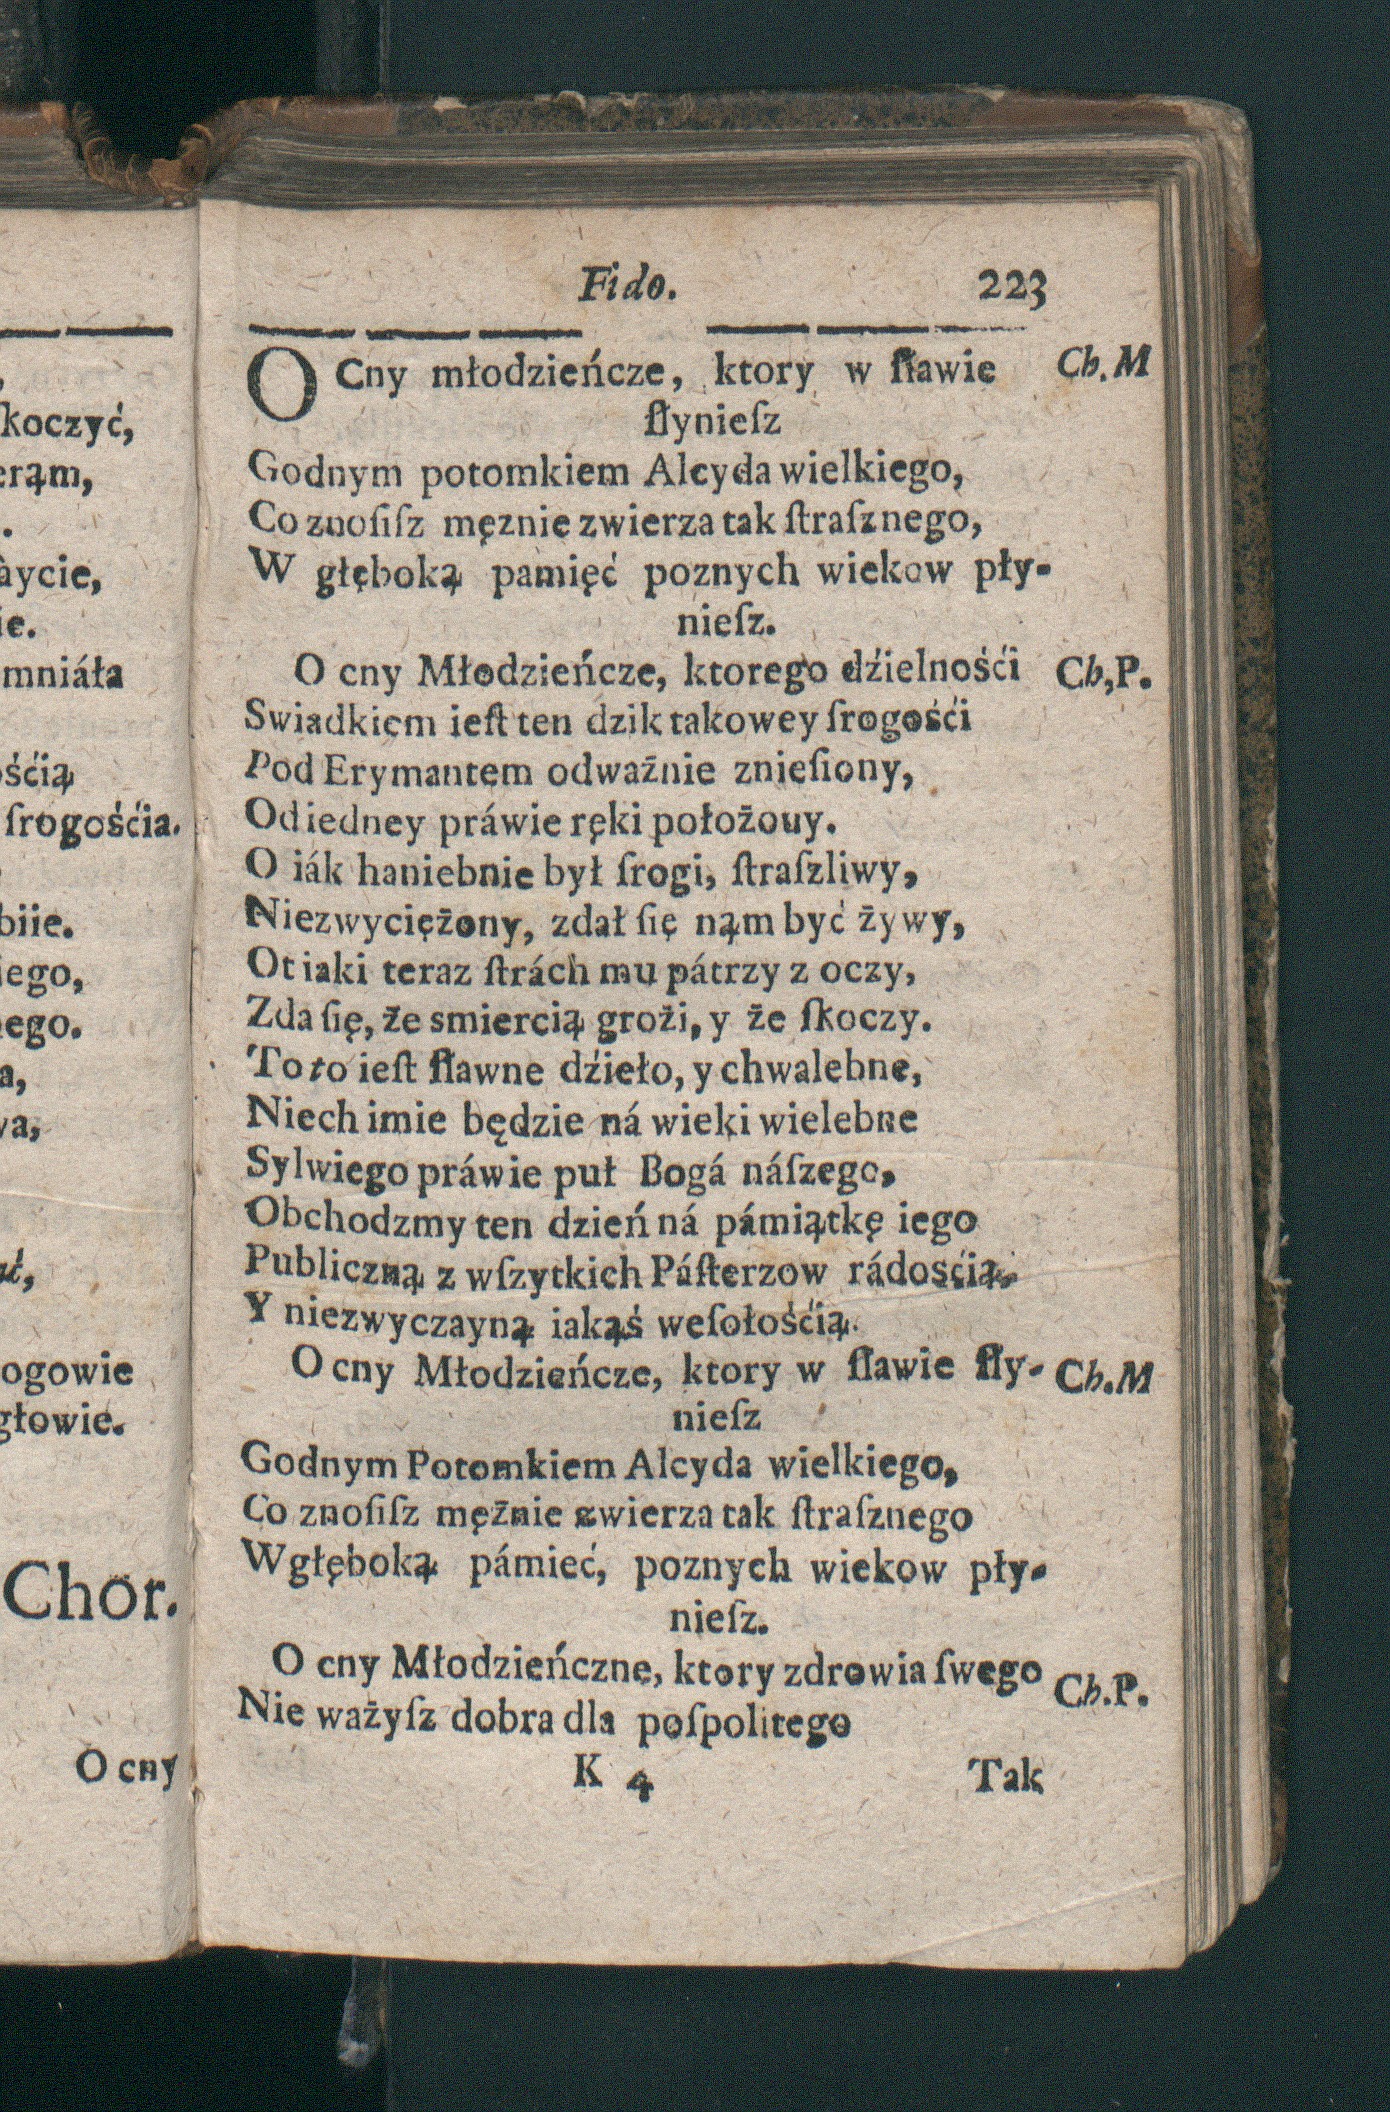 ,
ſkoczyć,
erąm,
.
àycie,
ie.
mniáła
ośćią
ſrogośćia.
biie.
iego,
nego.
a,
wa,
ogowie
głowie.
Chor.
O cny
Fido. 223
O Cny młodzieńcze, ktory w ſławie Ch. M
ſłynieſz
Godnym potomkiem Alcyda wielkiego,
Co znoſiſz męznie zwierza tak ſtraſznego,
W głęboką pamięć poznych wiekow pły-
nieſz.
O cny Młodzieńcze, ktorego dźielnośći Ch, P.
Swiadkiem ieſt ten dzik takowey ſrogośći
Pod Erymantem odważnie znieſiony,
Od iedney práwie ręki położouy.
O iák haniebnie był ſrogi, ſtraſzliwy,
Niezwyciężony, zdał ſię nąm być żywy,
Ot iaki teraz ſtrách mu pátrzy z oczy,
Zda ſię, że smiercią groźi, y że ſkoczy.
To to ieſt ſławne dźieło, y chwalebne,
Niech imie będzie ná wieki wielebne
Sylwiego práwie puł Bogá náſzego,
Obchodzmy ten dzień ná pámiątkę iego
Publiczną z wſzytkich Páſterzow rádośćią,
Y niezwyczayną iakąś weſołośćią.
O cny Młodzieńcze, ktory w ſławie ſły- Ch. M
nieſz
Godnym Potomkiem Alcyda wielkiego,
Co znoſiſz mężnie zwierza tak ſtraſznego
W głęboką pámieć, poznych wiekow pły-
nieſz.
O cny Młodzieńczne, ktory zdrowia ſwego Ch. P.
Nie ważyſz dobra dla poſpolitego
K 4 Tak